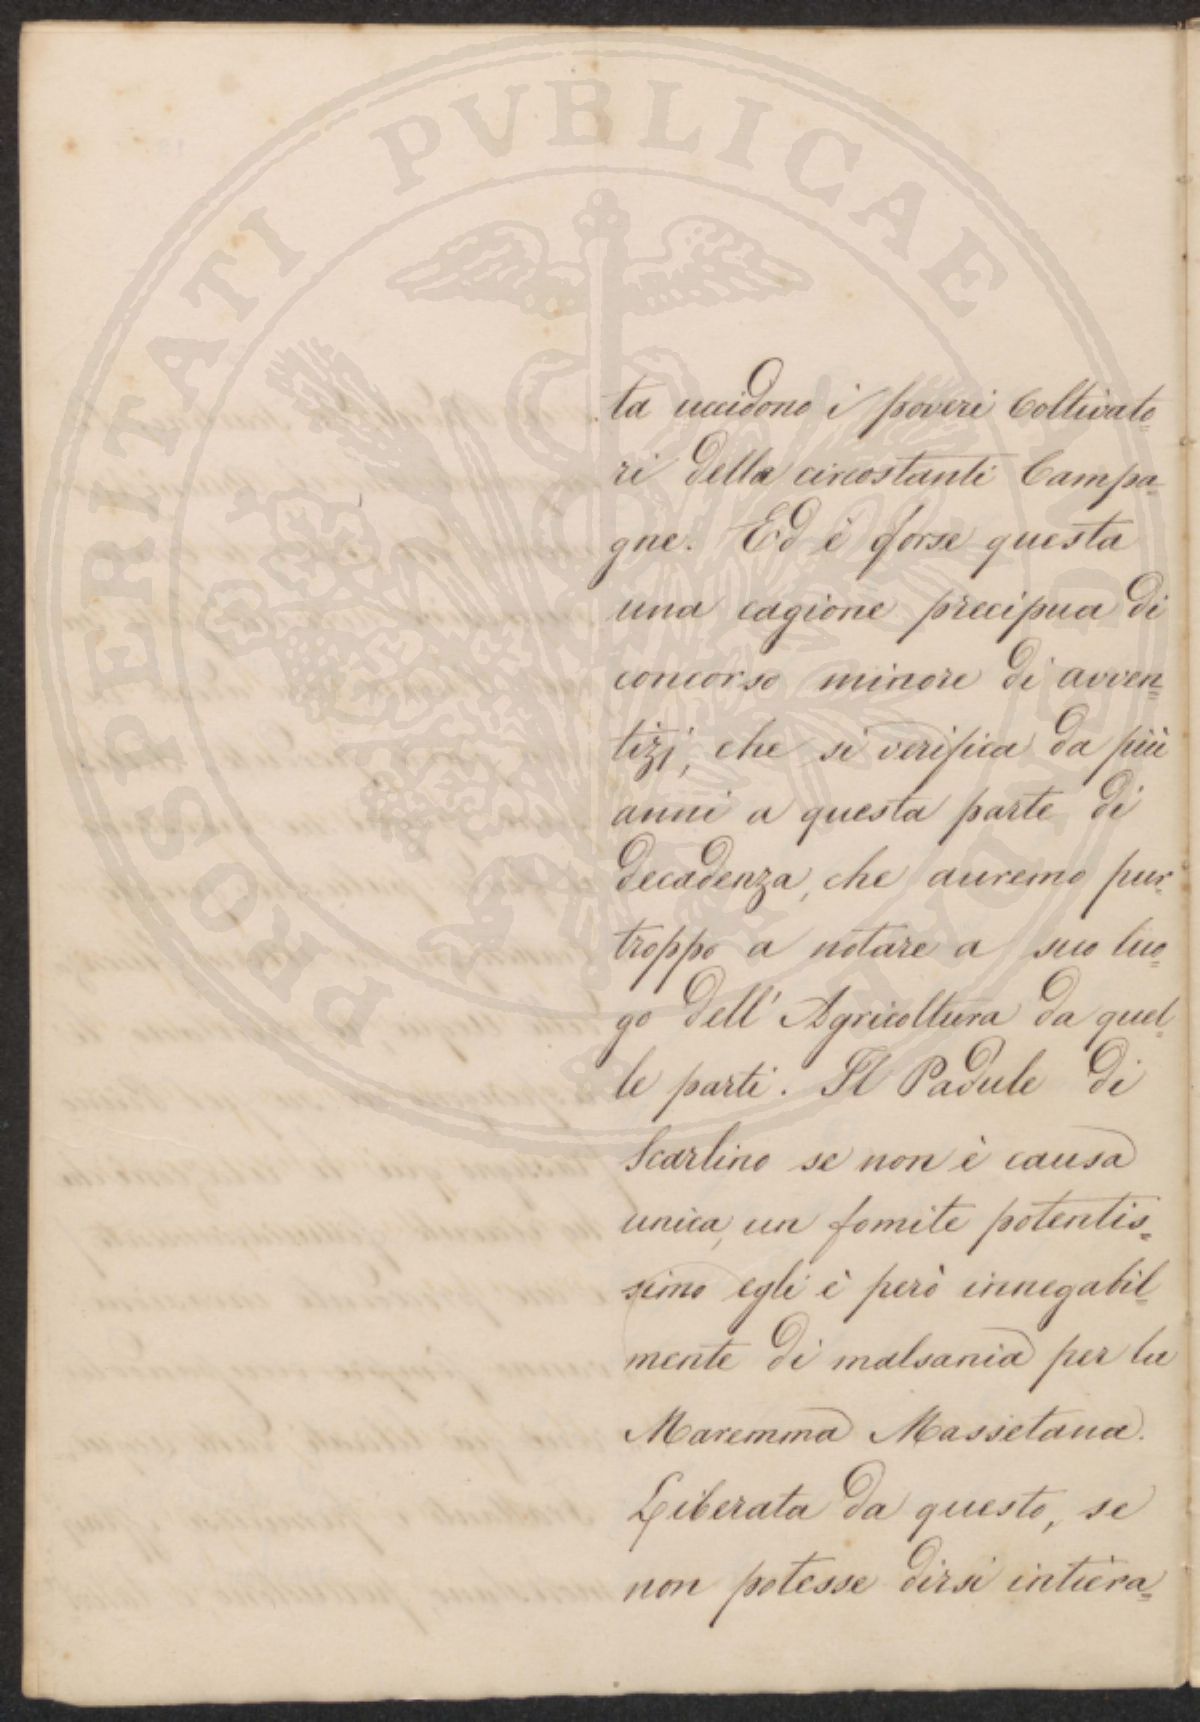 PROSPERITATI PVBLICAE
ta uccidono i poveri Coltivato=
ri della circostanti Campa=
gne. Ed è forse questa
una cagione precipua di
concorso minore di avven=
tizj, che si verifica da più
anni a questa parte di
decadenza, che auremo pur=
troppo a notare a suo luo=
go dell' Agricoltura da quel=
le parti. Il Padule di
Scarlino se non è causa
unica, un fomite potentis=
simo egli è però innegabil=
mente di malsania per la
Maremma Massetana.
Liberata da questo, se
non potesse dirsi intiera=